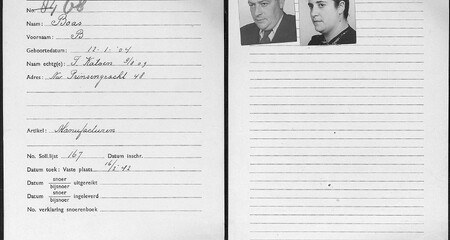 No 8408
Naam: Boas
Voornaam: B
Geboortedatum: 12-1-'04
Naam echtg(e): S. 9/8 09
Adres: Nw Prinsengracht 48
Artikel: Manufacturen
No. Soll.lijst 167 Datum inschr.
Datum toek: Vaste plaats 16/2 '42
Datum snoer bijsnoer uitgereikt
Datum snoer bijsnoer ingeleverd
No. verklaring snoerenboek